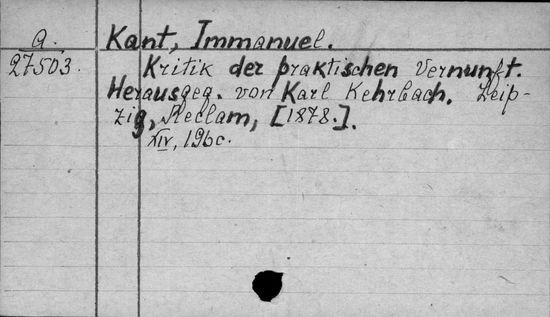 a.
27503.
Kant, Immanuel.
Kritik der praktischen Vernunft.
Herausgeg. von Karl Kehrbach. Leip-
zig, Reclam, [1878.].
XIV, 196 c.